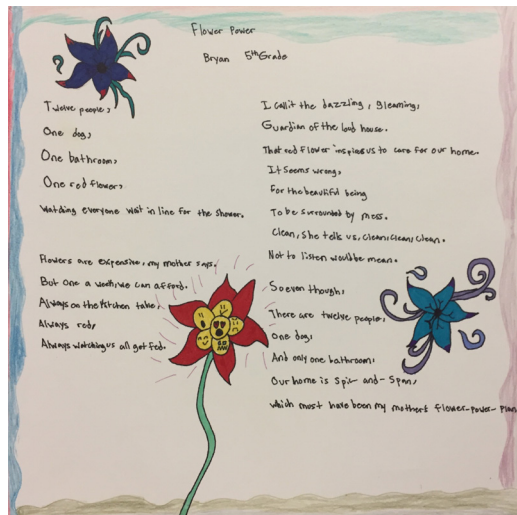 Flower Power
Bryan 5th Grade
Twelve people,
One dog,
One bathroom,
One red flower,
Watching everyone wait in line for the shower.
Flowers are expensive, my mother says.
But one a week, we can afford.
Always on the kitchen table,
Always red,
Always watching us all get fed.
I call it the dazzling, gleaming,
Guardian of the loud house.
That red flower inspires us to care for our home.
It seems wrong,
For the beautiful being
To be surrounded by mess.
Clean, she tells us, clean, clean, clean.
Not to listen would be mean.
So even though,
There are twelve people,
One dog,
And only one bathroom,
Our home is Spic-and-Span,
which most have been my mother's flower-power-plan